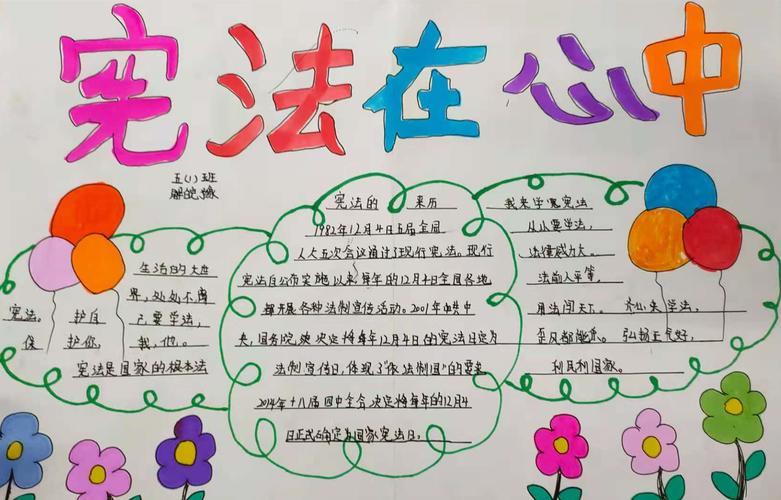 宪法在心中
五(1)班
生活的大世
界,处处不离
宪法。护自己要学法,
保护你,我,他。
宪法是国家的根本法
宪法的来历
1982年12月4日五届全国
人大五次会议通过了现行宪法。现行
宪法自公布实施以来每年的12月4日全国各地
都开展各种法制宣传活动。2001年中共中
央,国务院决定将每年12月4日的宪法日定为
法制宣传日,体现了"依法制国"的要求
2014年十八届四中全会决定将每年的12月4
日正式确定为国家宪法日。
我来学宪法
从小要学法,
法律威力大。
法前人平等,
用法闯天下。齐心学法,
歪风都能杀。弘扬正气好,
利民利国家。